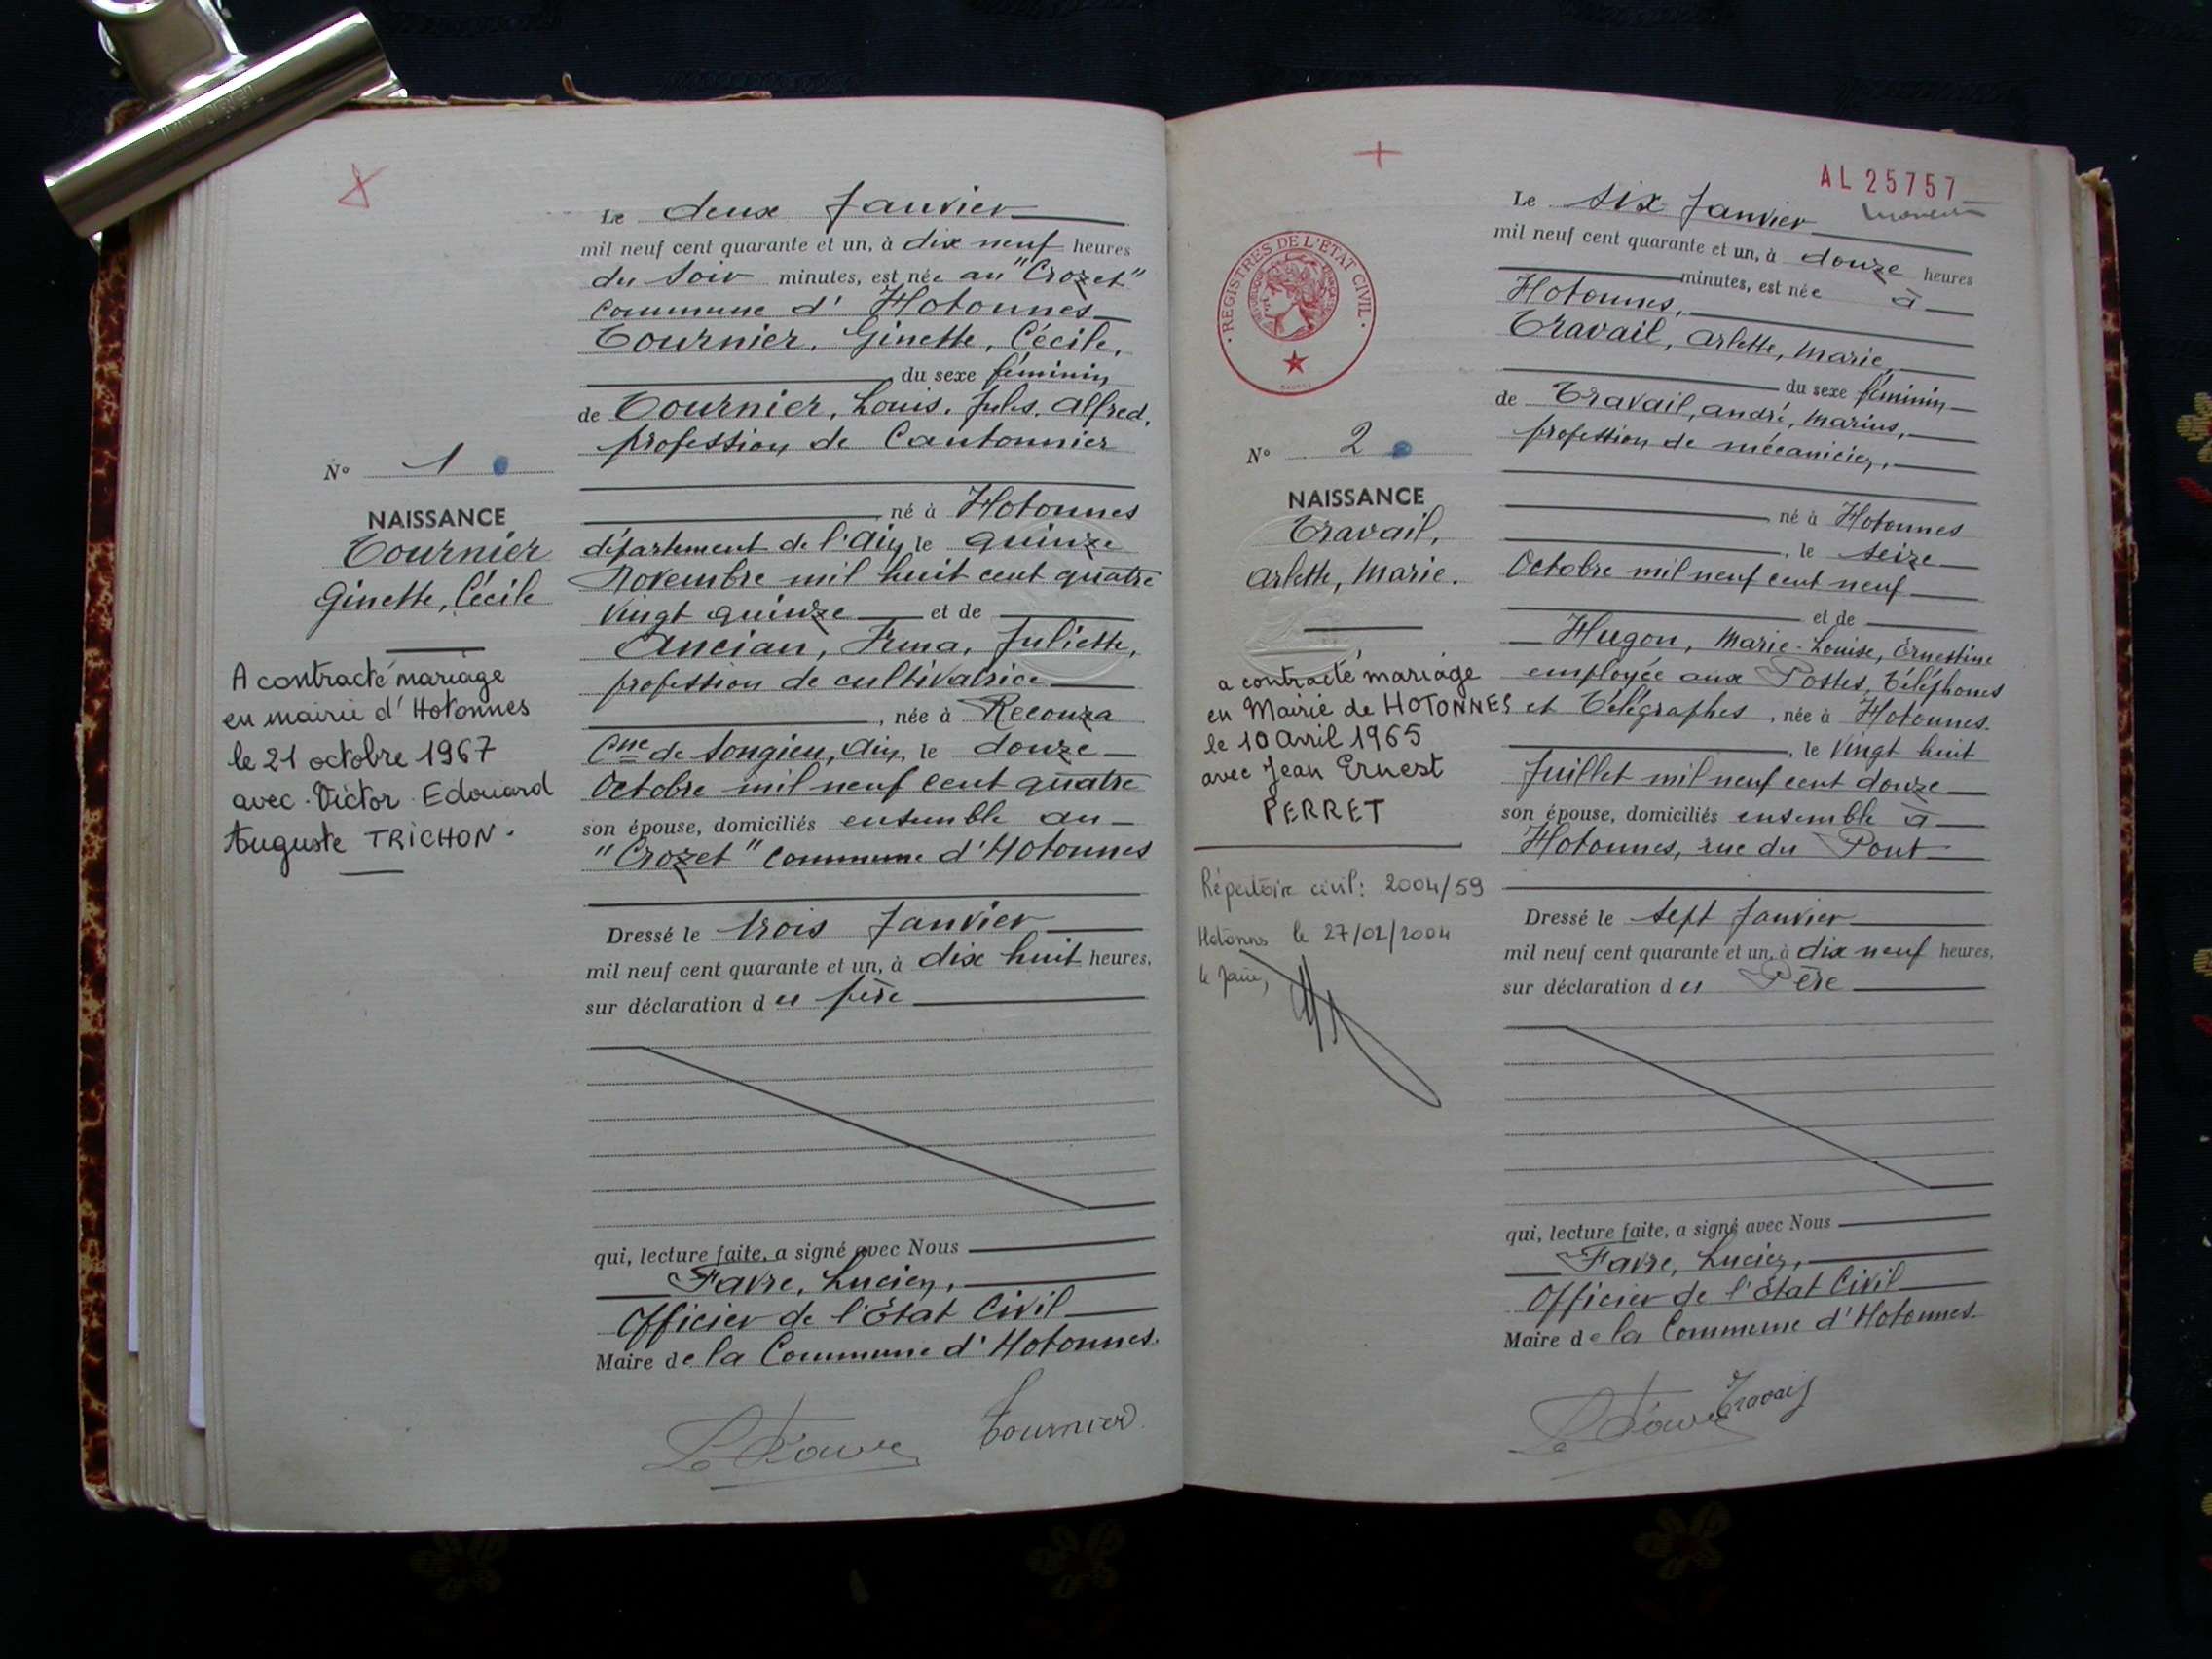 Le deux Janvier
mil neuf cent quarante et un, à dix neuf heures
du soir minutes, est née au "Crozet"
commune d' Hotonnes
Tournier, Ginette, Cécile,
du sexe féminin
de Tournier, Louis, Jules, Alfred,
profession de Cantonnier
né à Hotonnes
département de l'Ain, le quinze
Novembre mil huit cent quatre
vingt quinze et de
Ancian, Irma, Juliette,
profession de cultivatrice
, née à Reconza
Cne de Songieu, Ain, le douze
Octobre mil neuf cent quatre
son épouse, domiciliés ensemble au
"Crozet" commune d'Hotonnes
Dressé le trois Janvier
mil neuf cent quarante et un, à dix huit heures,
sur déclaration du père
qui, lecture faite, a signé avec Nous
Favre, Lucien,
Officier de l'Etat Civil
Maire de la Commune d'Hotonnes.
L. Favre
Tournier
N° 1
NAISSANCE
Tournier
Ginette, Cécile
A contracté mariage
en mairie d'Hotonnes
le 21 octobre 1967
avec Victor Edouard
Auguste TRICHON.
AL 25757
Le six Janvier
mil neuf cent quarante et un, à douze heures
minutes, est née à
Hotonnes,
Travail, Arlette, Marie,
du sexe féminin
de Travail, André, Marius,
profession de mécanicien,
né à Hotonnes
, le seize
Octobre mil neuf cent neuf
et de
Hugon, Marie-Louise, Ernestine
employée aux Postes, Téléphones
et Télégraphes, née à Hotonnes.
, le vingt huit
Juillet mil neuf cent douze
son épouse, domiciliés ensemble à
Hotonnes, rue du Pont
Dressé le sept Janvier
mil neuf cent quarante et un, à dix neuf heures,
sur déclaration du Père
qui, lecture faite, a signé avec Nous
Favre, Lucien,
Officier de l'Etat Civil
Maire de la Commune d'Hotonnes.
L. Favre
Travail
REGISTRES DE L'ETAT CIVIL
N° 2
NAISSANCE
Travail,
Arlette, Marie.
a contracté mariage
en Mairie de HOTONNES
le 10 Avril 1965
avec Jean Ernest
PERRET
Répertoire civil: 2004/59
Hotonnes le 27/02/2004